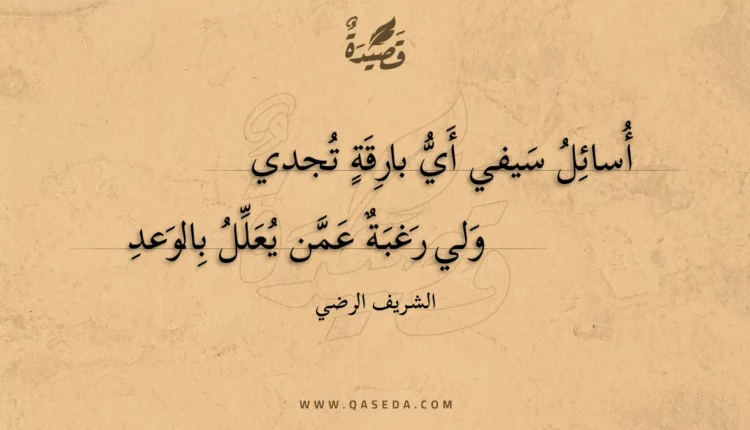 قَصِيْدَةٌ
أُسائِلُ سَيفي أَيُّ بارِقَةٍ تُجدي
وَلي رَغبَةٌ عَمَّن يُعَلِّلُ بِالوَعدِ
الشريف الرضي
WWW.QASEDA.COM